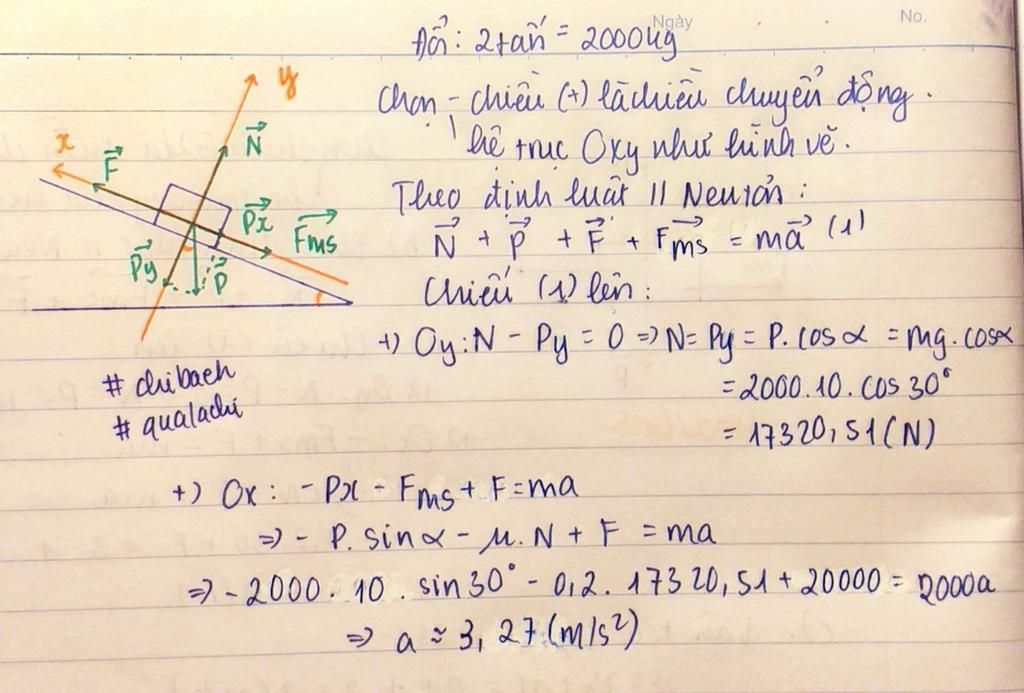 Ngày
No.
Đổi: 2 tấn = 2000kg
Chọn - chiều (+) là chiều chuyển động.
hệ trục Oxy như hình vẽ.
Theo định luật II Neutơn:
N⃗ + P⃗ + F⃗ + F⃗ms = ma⃗ (1)
Chiếu (1) lên:
+) Oy: N - Py = 0 => N = Py = P. cosα = mg. cosα
= 2000.10. cos 30°
= 17320,51 (N)
y
x
F⃗
N⃗
P⃗x
F⃗ms
P⃗y
P⃗
# chibach
# qualachi
+) Ox: - Px - Fms + F = ma
=> - P. sinα - μ. N + F = ma
=> - 2000. 10. sin 30° - 0,2. 17320,51 + 20000 = 2000a
=> a ≈ 3,27 (m/s²)